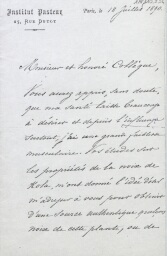 Institut Pasteur
25, Rue Dutot
Paris, le 18 Juillet 1890.
Monsieur et honoré Collègue,
Vous aurez appris, sans doute,
que ma santé laisse beaucoup
à désirer et depuis l'influenza
surtout, j'ai une grande faiblesse
musculaire. Vos études sur
les propriétés de la noix de
Kola, m'ont donné l'idée de
m'adresser à vous pour obtenir
d'une source authentique quelques
noix de cette plante, ou de